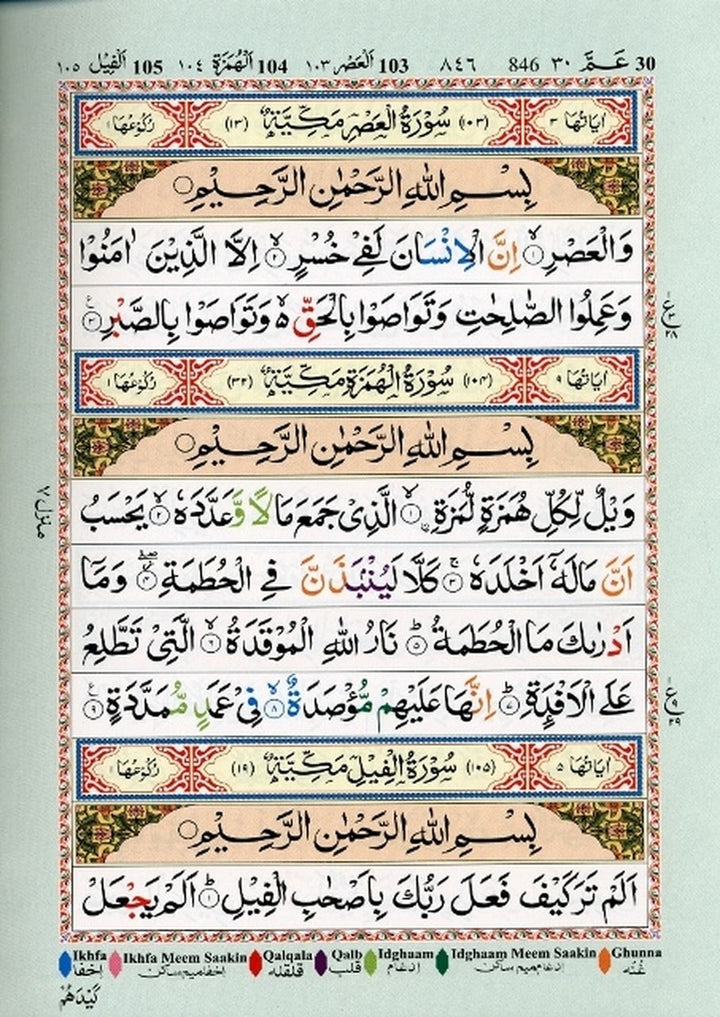 30 عَمَّ ٣٠ 846 ٨٤٦ 103 اَلْعَصْر ١٠٣ 104 اَلْهُمَزَة ١٠٤ 105 اَلْفِيل ١٠٥
اٰيَاتُهَا ٣ (١٠٣) سُوْرَةُ الْعَصْرِ مَكِّيَّةٌ (١٣) رُكُوْعُهَا ١
بِسْمِ اللهِ الرَّحْمٰنِ الرَّحِيْمِ
وَالْعَصْرِ ۙ﴿١﴾ اِنَّ الْاِنْسَانَ لَفِيْ خُسْرٍ ۙ﴿٢﴾ اِلَّا الَّذِيْنَ اٰمَنُوْا
وَعَمِلُوا الصّٰلِحٰتِ وَتَوَاصَوْا بِالْحَقِّ ەۙ وَتَوَاصَوْا بِالصَّبْرِ ﴿٣﴾
ع ٣ ٢٨
اٰيَاتُهَا ٩ (١٠٤) سُوْرَةُ الْهُمَزَةِ مَكِّيَّةٌ (٣٢) رُكُوْعُهَا ١
بِسْمِ اللهِ الرَّحْمٰنِ الرَّحِيْمِ
وَيْلٌ لِّكُلِّ هُمَزَةٍ لُّمَزَةِ ۙ﴿١﴾ الَّذِيْ جَمَعَ مَالًا وَّعَدَّدَهٗ ۙ﴿٢﴾ يَحْسَبُ
اَنَّ مَالَهٗٓ اَخْلَدَهٗ ۚ﴿٣﴾ كَلَّا لَيُنْۢبَذَنَّ فِي الْحُطَمَةِ ۖ﴿٤﴾ وَمَآ
اَدْرٰىكَ مَا الْحُطَمَةُ ؕ﴿٥﴾ نَارُ اللهِ الْمُوْقَدَةُ ۙ﴿٦﴾ الَّتِيْ تَطَّلِعُ
عَلَى الْاَفْئِدَةِ ؕ﴿٧﴾ اِنَّهَا عَلَيْهِمْ مُّؤْصَدَةٌ ۙ﴿٨﴾ فِيْ عَمَدٍ مُّمَدَّدَةٍ ﴿٩﴾
ع ٩ ٢٩
منزل ٧
اٰيَاتُهَا ٥ (١٠٥) سُوْرَةُ الْفِيْلِ مَكِّيَّةٌ (١٩) رُكُوْعُهَا ١
بِسْمِ اللهِ الرَّحْمٰنِ الرَّحِيْمِ
اَلَمْ تَرَ كَيْفَ فَعَلَ رَبُّكَ بِاَصْحٰبِ الْفِيْلِ ؕ﴿١﴾ اَلَمْ يَجْعَلْ
Ikhfa Ikhfa Meem Saakin Qalqala Qalb Idghaam Idghaam Meem Saakin Ghunna
اِخفا اخفا میم ساکن قلقله قلب اِدغام اِدغام میم ساکن غُنّه
كَيْدَهُمْ